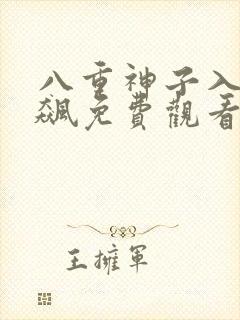 八重神子入
飙免費觀看
王擁軍